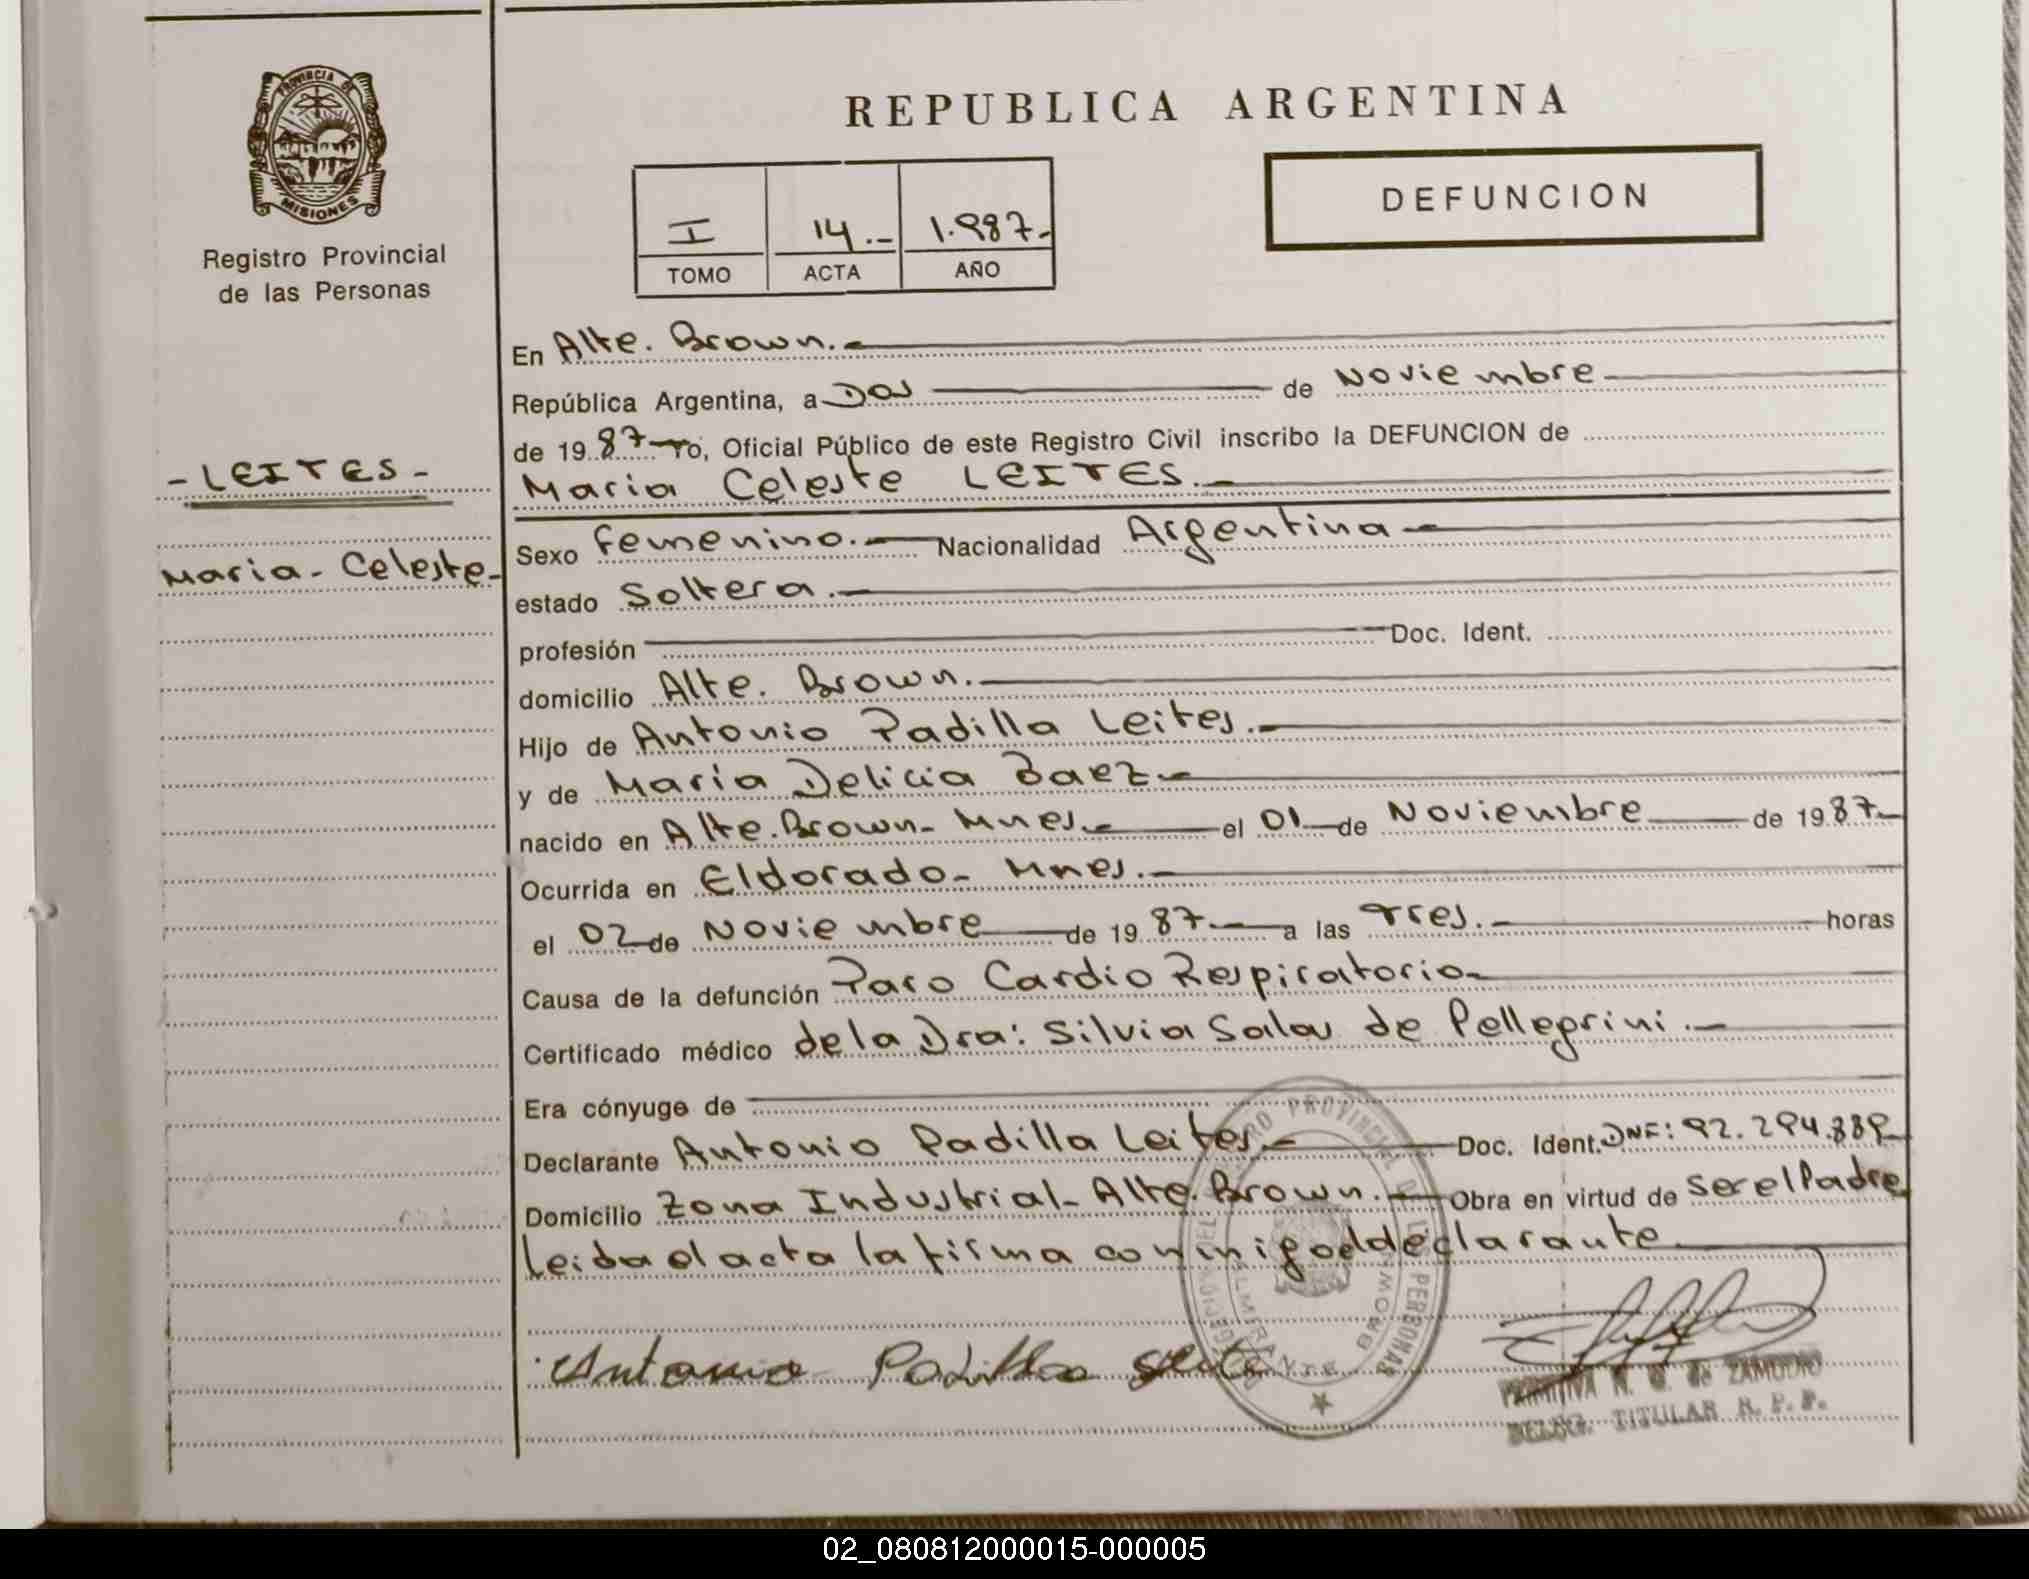 PROVINCIA DE
MISIONES
Registro Provincial
de las Personas
- LEITES -
Maria - Celeste -
REPUBLICA ARGENTINA
I 14.- 1.987.-
TOMO ACTA AÑO
DEFUNCION
En Alte. Brown.-
República Argentina, a Dos de Noviembre
de 19 87 Yo, Oficial Público de este Registro Civil inscribo la DEFUNCION de
Maria Celeste LEITES.-
Sexo Femenino.- Nacionalidad Argentina -
estado Soltera.-
profesión Doc. Ident.
domicilio Alte. Brown.-
Hijo de Antonio Padilla Leites.-
y de Maria Delicia Baez-
nacido en Alte. Brown- Mnes.- el 01 de Noviembre de 19 87-
Ocurrida en Eldorado- Mnes.-
el 02 de Noviembre de 19 87.- a las Tres.- horas
Causa de la defunción Paro Cardio Respiratorio-
Certificado médico de la Dra: Silvia Salas de Pellegrini.-
Era cónyuge de
Declarante Antonio Padilla Leites.- Doc. Ident. DNI: 92.294.889
Domicilio Zona Industrial- Alte. Brown.- Obra en virtud de ser el Padre
Leida el acta la firma conmigo el declarante
Antonio Padilla Leite
REGISTRO PROVINCIAL DE LAS PERSONAS
ALMIRANTE BROWN
PRIMITIVA N. G. de ZAMUDIO
DELEG. TITULAR R. P. P.
02_080812000015-000005